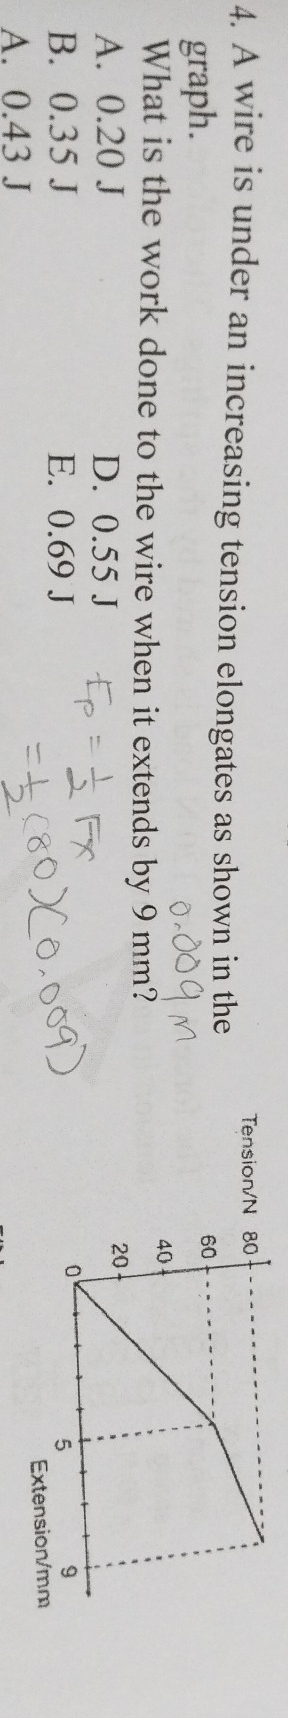 4. A wire is under an increasing tension elongates as shown in the
graph.
0.009 m
What is the work done to the wire when it extends by 9 mm?
A. 0.20 J
D. 0.55 J
B. 0.35 J
E. 0.69 J
A. 0.43 J
Ep = 1/2 Fx
= 1/2 (80)(0.009)
Tension/N
80
60
40
20
0
5
9
Extension/mm